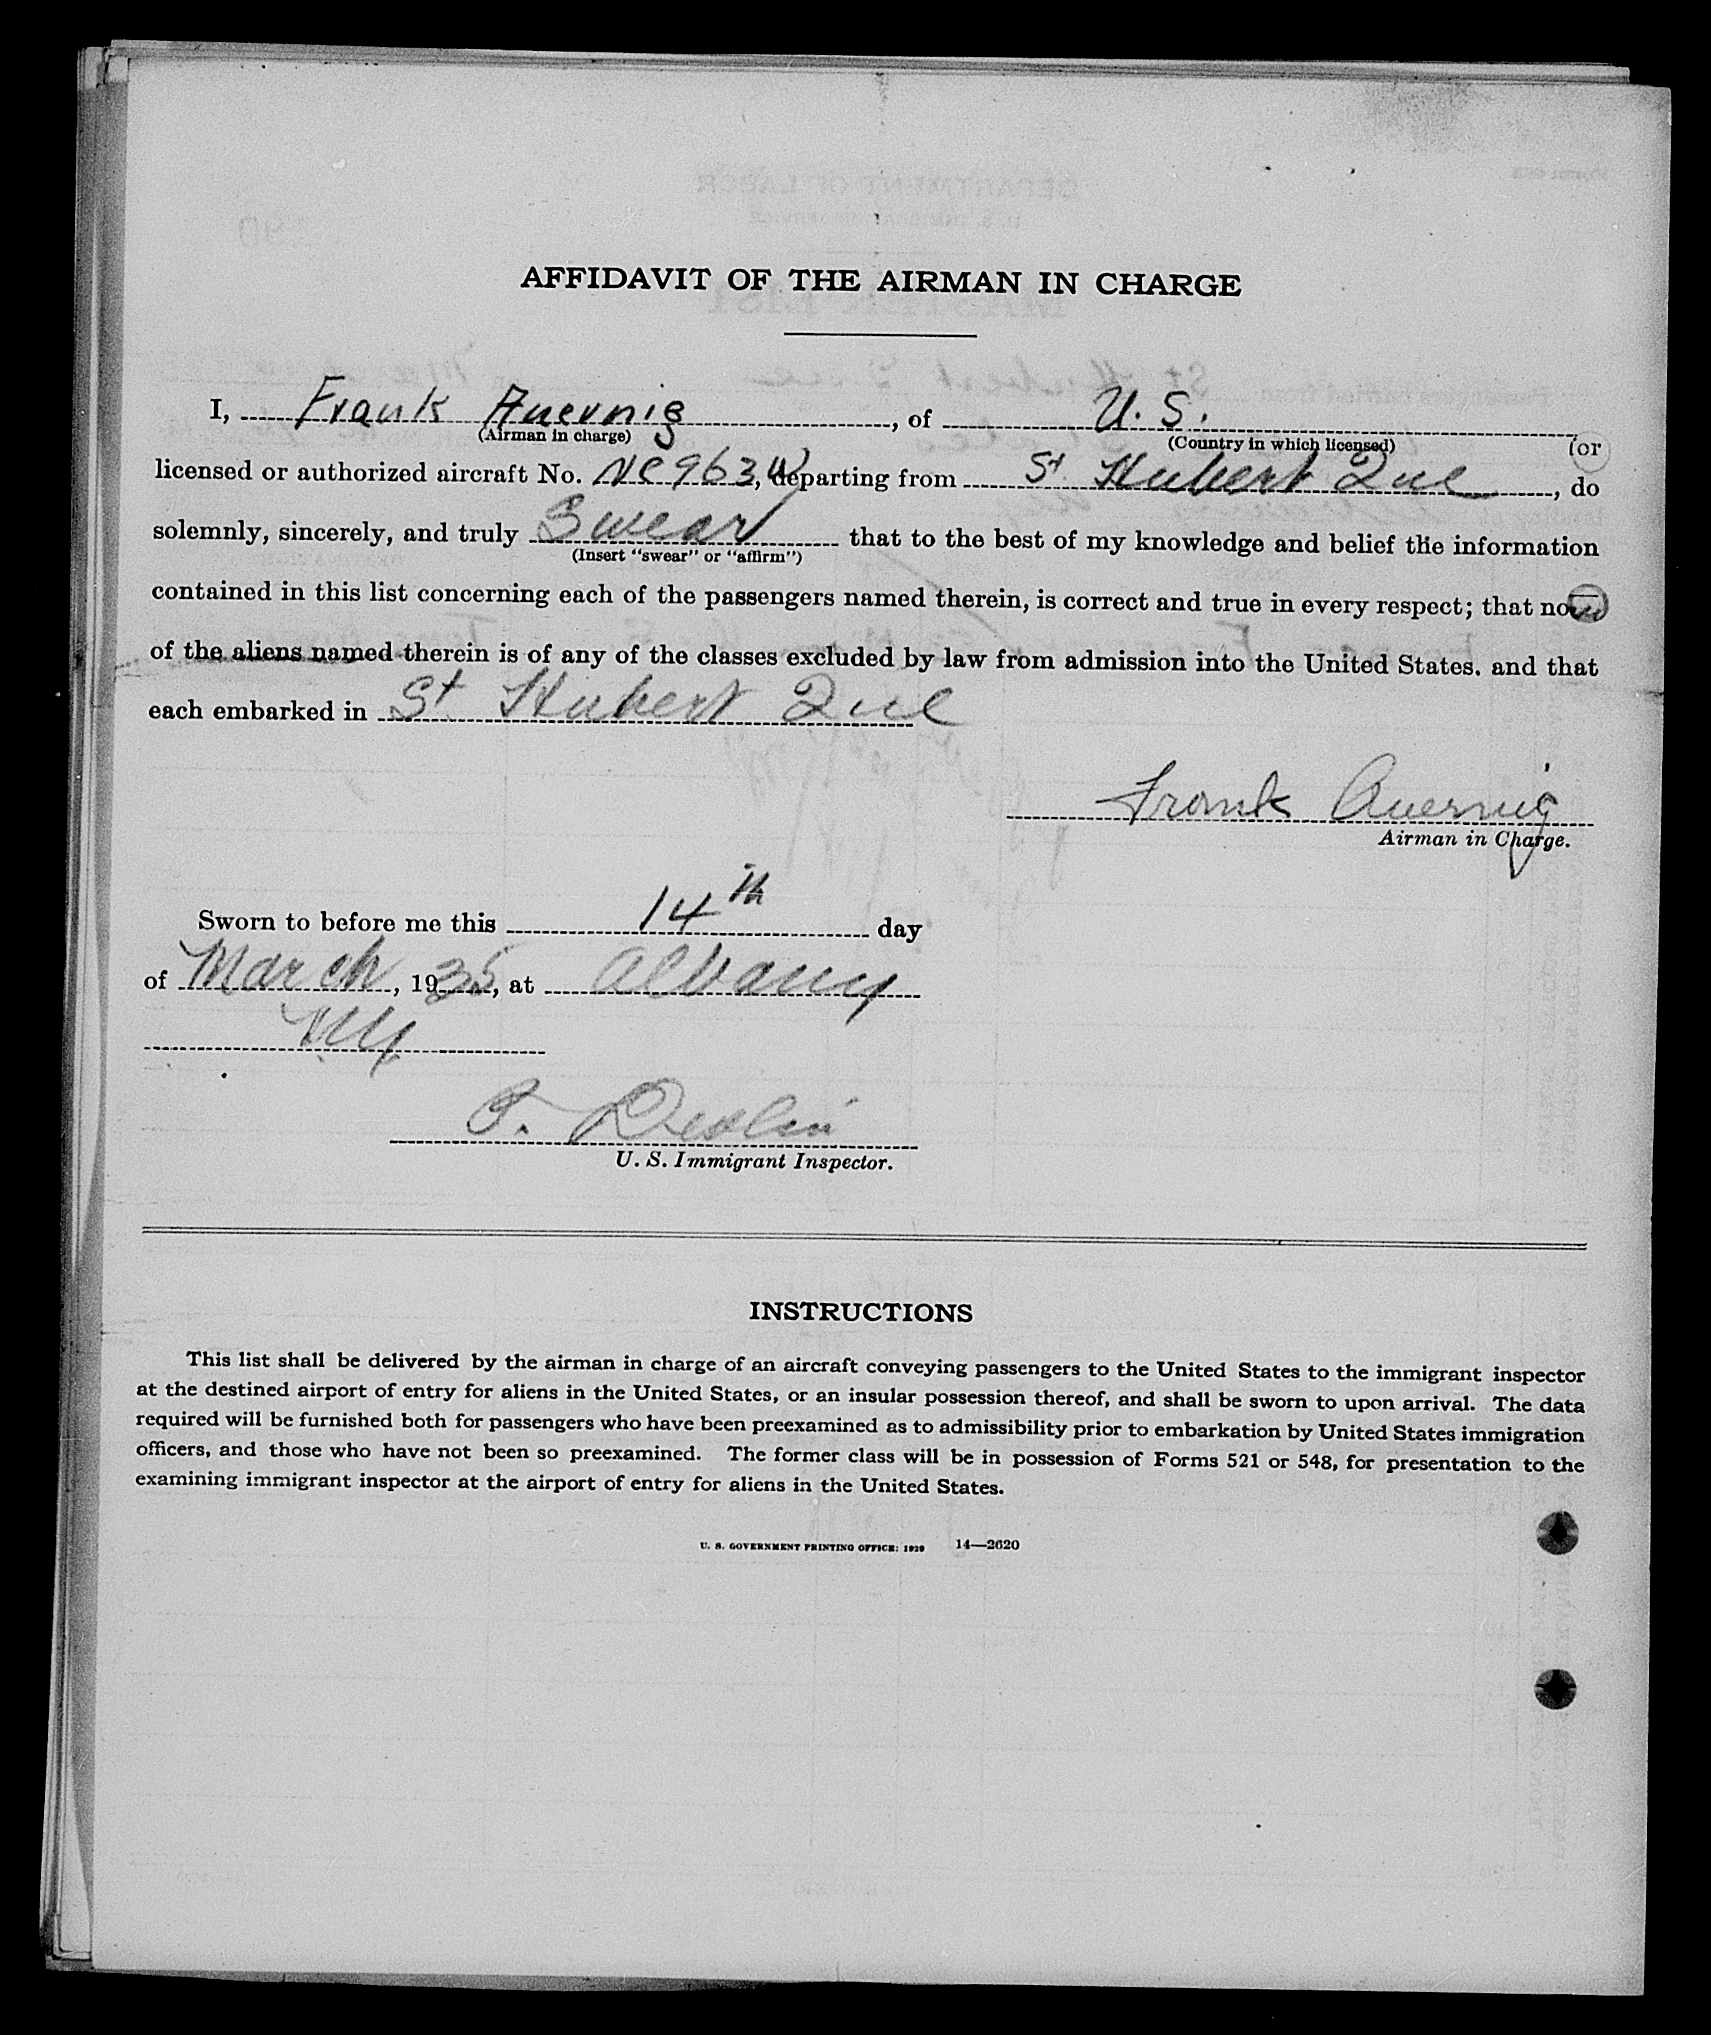 AFFIDAVIT OF THE AIRMAN IN CHARGE
I, Frank Auernig, of U. S. (or
(Airman in charge) (Country in which licensed)
licensed or authorized aircraft No. NC963W, departing from St Hubert Que, do
solemnly, sincerely, and truly Swear that to the best of my knowledge and belief the information
(Insert "swear" or "affirm")
contained in this list concerning each of the passengers named therein, is correct and true in every respect; that none
of the aliens named therein is of any of the classes excluded by law from admission into the United States. and that
each embarked in St Hubert Que
Frank Auernig
Airman in Charge.
Sworn to before me this 14th day
of March, 1935, at Albany
NY
Devlin
U. S. Immigrant Inspector.
INSTRUCTIONS
This list shall be delivered by the airman in charge of an aircraft conveying passengers to the United States to the immigrant inspector
at the destined airport of entry for aliens in the United States, or an insular possession thereof, and shall be sworn to upon arrival. The data
required will be furnished both for passengers who have been preexamined as to admissibility prior to embarkation by United States immigration
officers, and those who have not been so preexamined. The former class will be in possession of Forms 521 or 548, for presentation to the
examining immigrant inspector at the airport of entry for aliens in the United States.
U. S. GOVERNMENT PRINTING OFFICE: 1929 14—2620